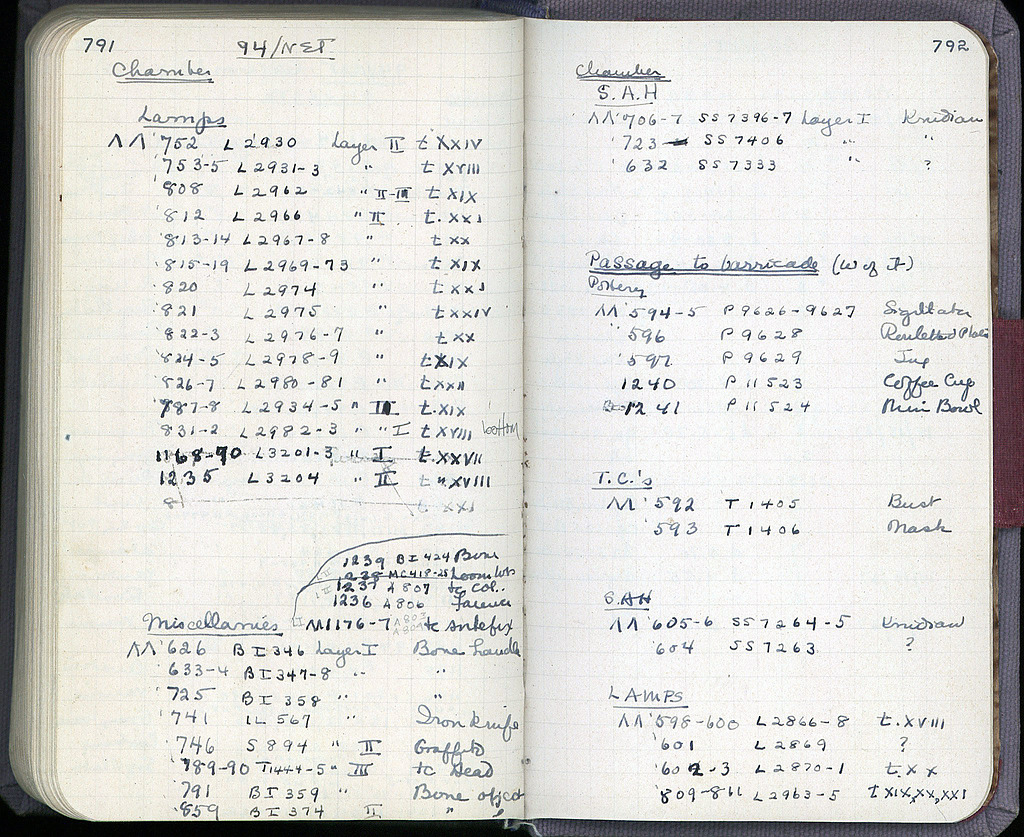 791 94/NET
Chamber
Lamps
ΛΛ '752 L 2930 Layer II t XXIV
'753-5 L 2931-3 " t XVIII
'808 L 2962 " II-III t XIX
'812 L 2966 " II t. XXI
'813-14 L 2967-8 " t XX
'815-19 L 2969-73 " t XIX
'820 L 2974 " t XXI
'821 L 2975 " t XXIV
'822-3 L 2976-7 " t XX
'824-5 L 2978-9 " t XIX
'826-7 L 2980-81 " t XXII
'787-8 L 2934-5 " III t. XIX
831-2 L 2982-3 " " I t XVIII bottom
1168-70 L 3201-3 " I t. XXVII
1235 L 3204 " II t " XVIII
8 t XXI
1239 BI 424 Bone
1238 MC 418-25 Loomwts
1237 A 807 tc Col.
1236 A 806 Faience
Miscellanies ΛΛ 1176-7 tc Antefix
ΛΛ '626 BI 346 Layer I Bone handle
'633-4 BI 347-8 " "
'725 BI 358 " "
'741 IL 567 " Iron knife
'746 S 894 " II Graffito
'789-90 T 1444-5 " III tc Head
791 BI 359 " Bone object
'859 BI 374 II "
792
Chamber
S.A.H
ΛΛ '706-7 SS 7396-7 Layer I Knidian
'723 SS 7406 " "
'632 SS 7333 " ?
Passage to barricade (W of It)
Pottery
ΛΛ '594-5 P 9626-9627 Sigillata
" 596 P 9628 Rouletted Plate
'597 P 9629 Jug
1240 P 11523 Coffee Cup
1241 P 11524 Mini Bowl
T.C.'s
ΛΛ '592 T 1405 Bust
593 T 1406 Mask
SAH
ΛΛ '605-6 SS 7264-5 Knidian
'604 SS 7263 ?
LAMPS
ΛΛ '598-600 L 2866-8 t. XVIII
'601 L 2869 ?
'602-3 L 2870-1 t XX
'809-811 L 2963-5 t XIX, XX, XXI